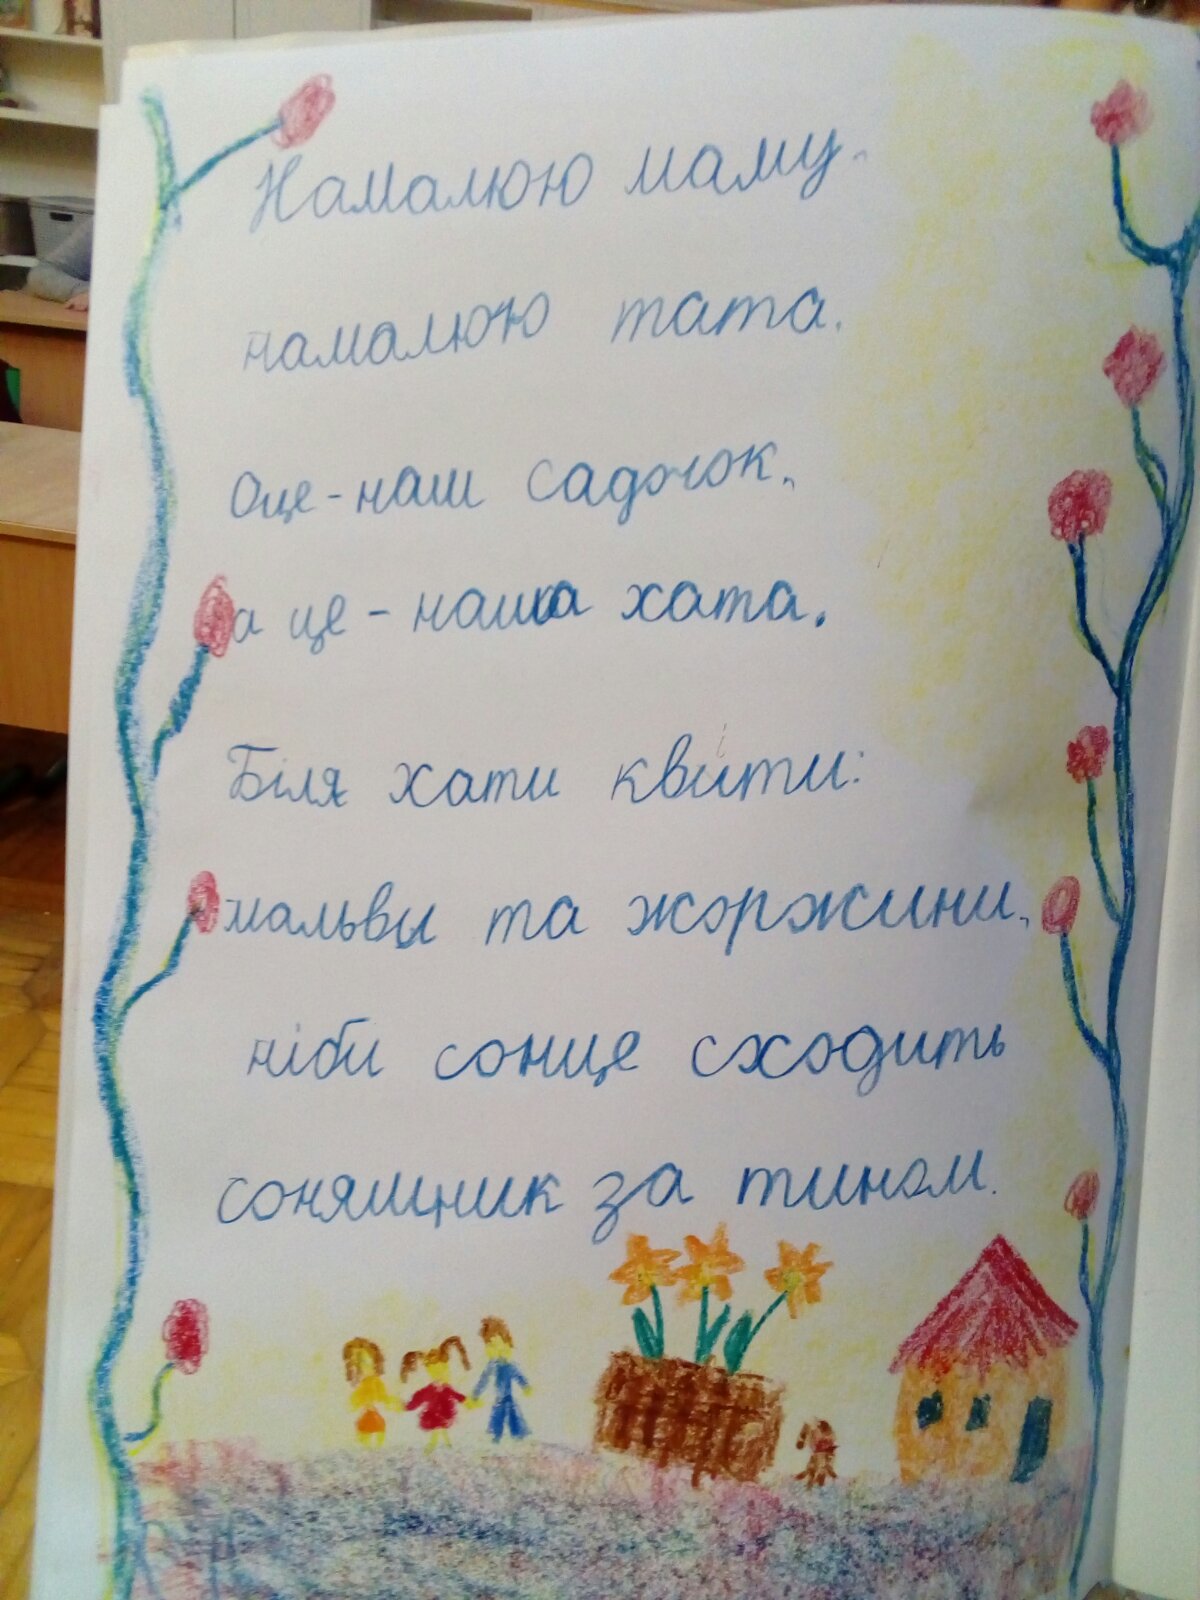 Намалюю маму,
намалюю тата.
Оце - наш садочок,
а це - наша хата.
Біля хати квіти:
мальви та жоржини,
ніби сонце сходить
соняшник за тином.